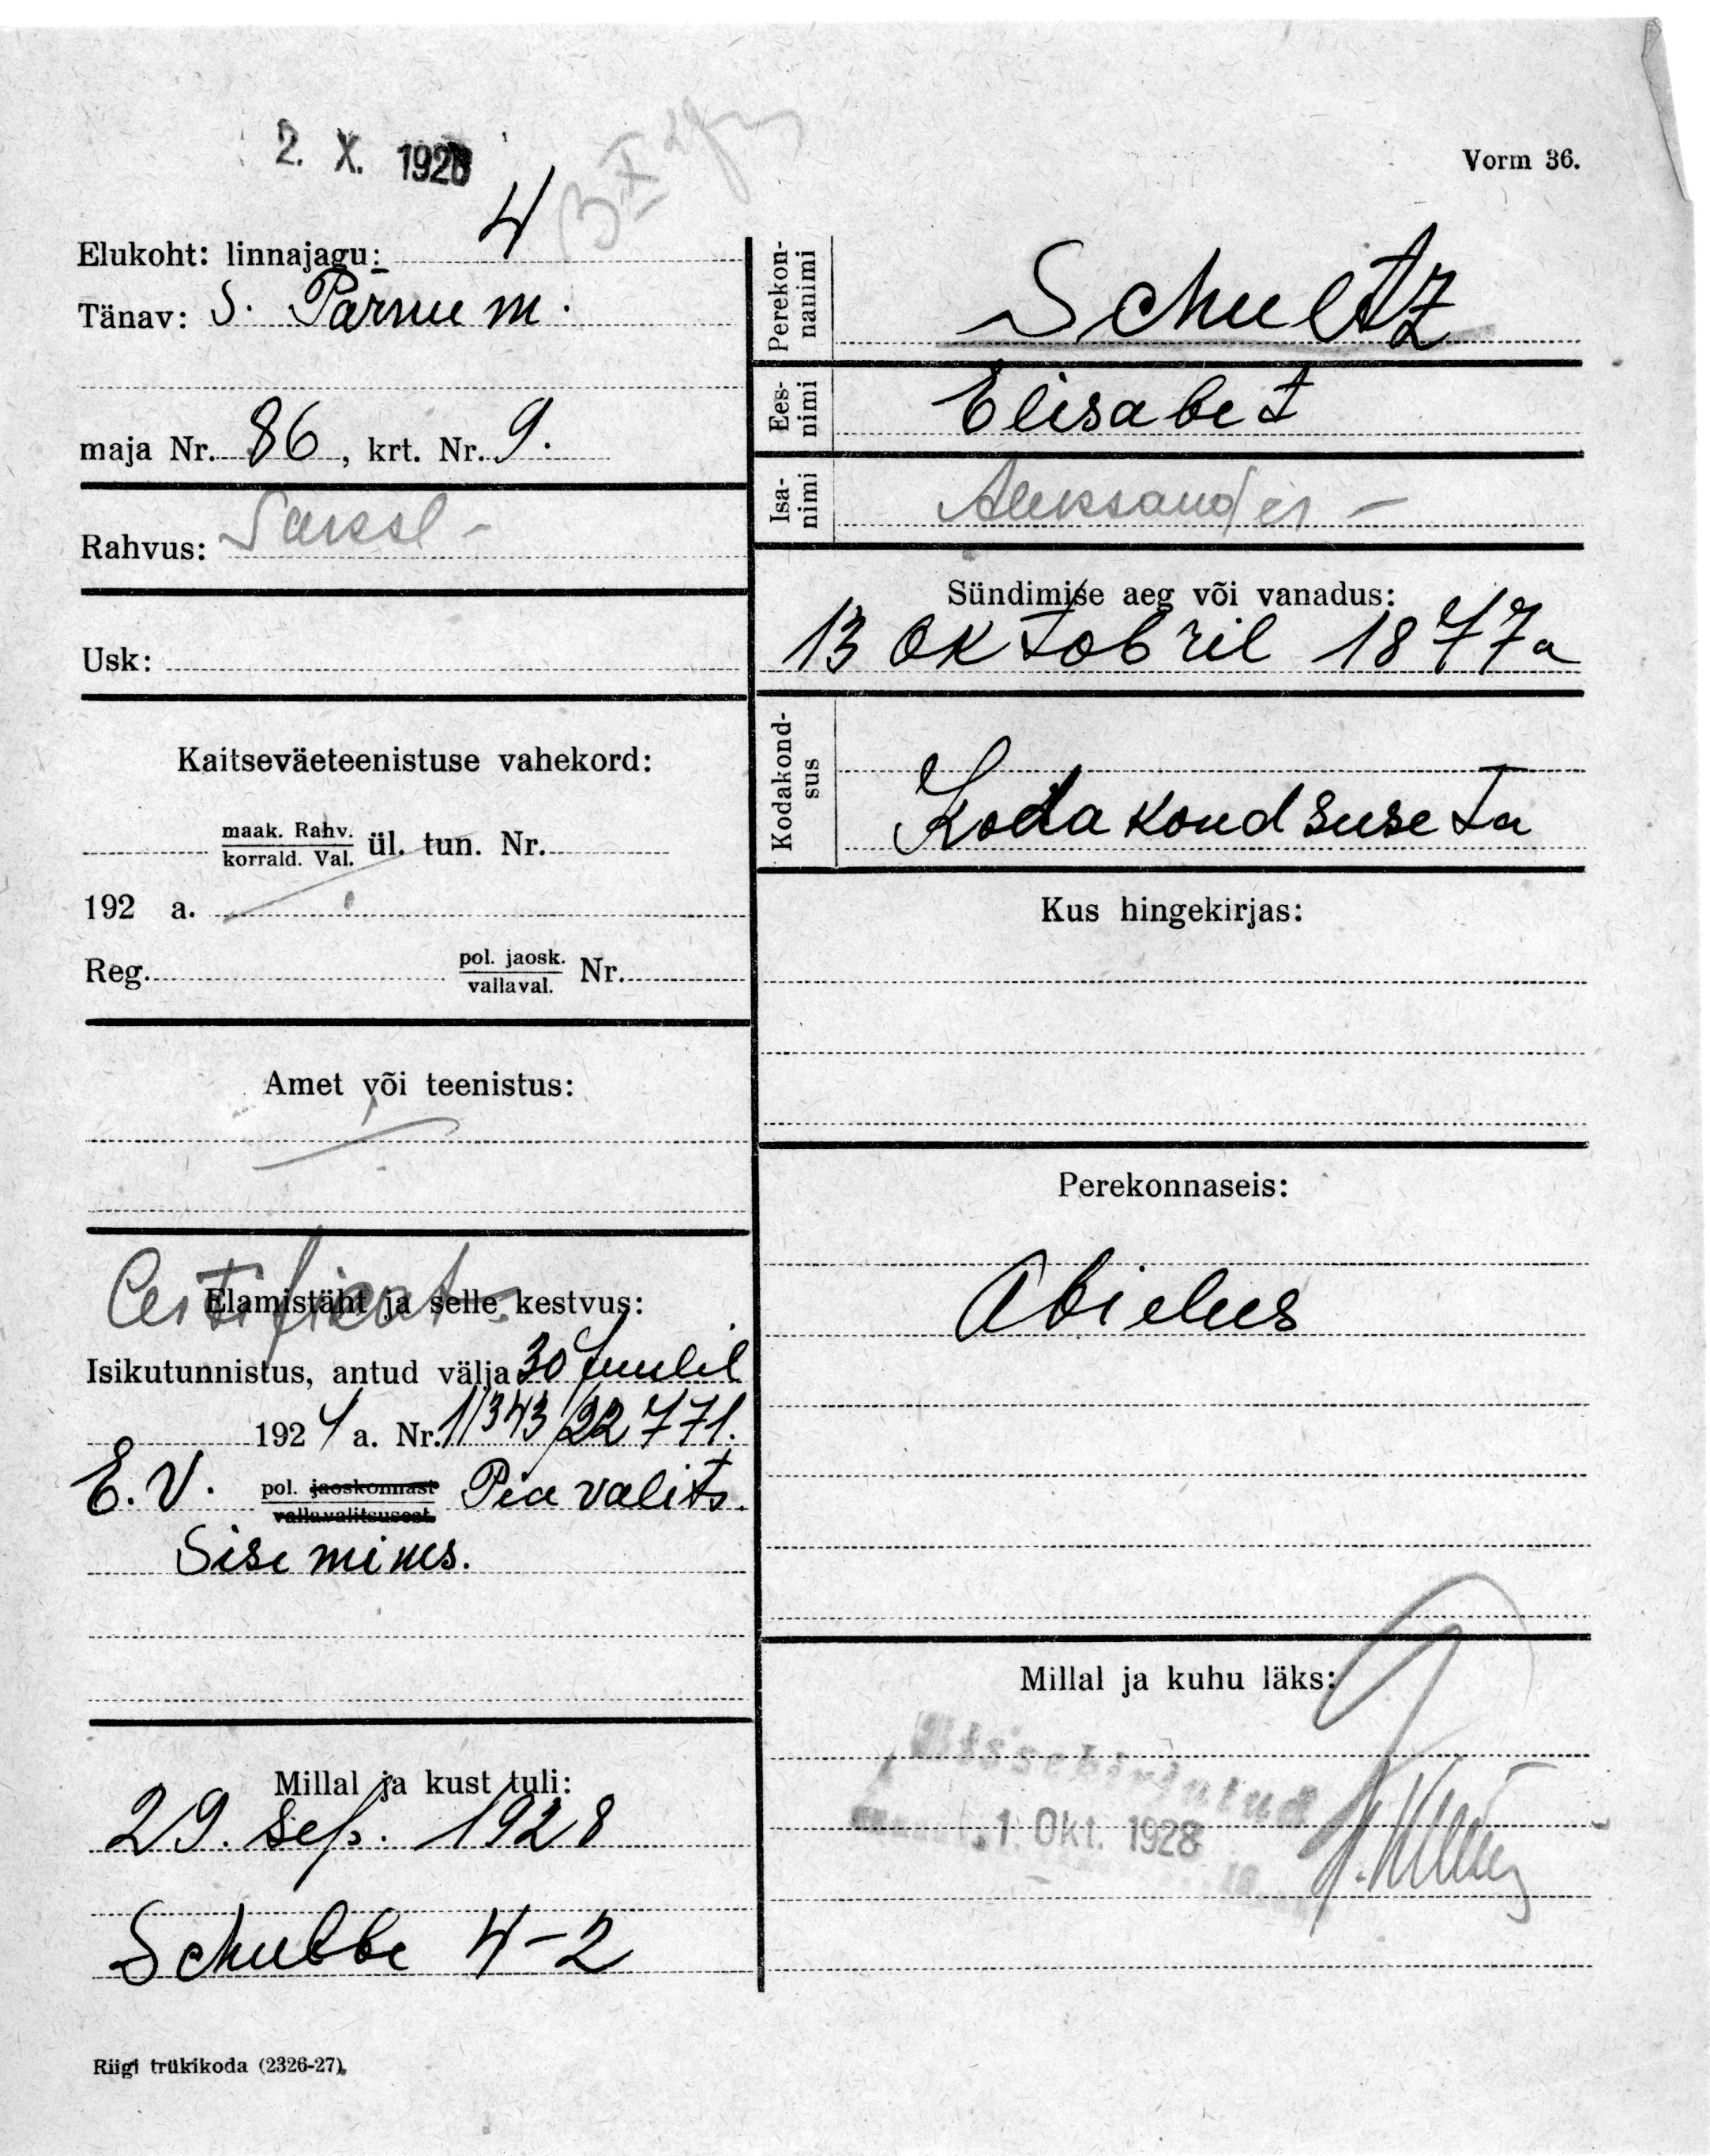 2. X. 1928
Vorm 36.
Elukoht: linnajagu: 4
Tänav: S. Pärnu m.
maja Nr. 86, krt. Nr. 9.
Rahvus: Saksl -
Usk:
Kaitseväeteenistuse vahekord:
maak. Rahv.
korrald. Val. ül. tun. Nr.
192 a.
Reg. pol. jaosk.
vallaval. Nr.
Amet või teenistus:
Certifikat
Elamistäht ja selle kestvus:
Isikutunnistus, antud välja 30 Juulil
1924 a. Nr. 11343/22771.
E. V. pol. jaoskonnast
vallavalitsusest Peavalits.
Sisemines.
Millal ja kust tuli:
29. Sep. 1928
Schubbe 4-2
Riigi trükikoda (2326-27).
Perekon-
nanimi
Schultz
Ees-
nimi
Elisabet
Isa-
nimi
Aleksander -
Sündimise aeg või vanadus:
13 Oktobril 1877 a
Kodakond-
sus
Kodakondsuseta
Kus hingekirjas:
Perekonnaseis:
Abielus
Millal ja kuhu läks:
Sissekirjutud
1. Okt. 1928